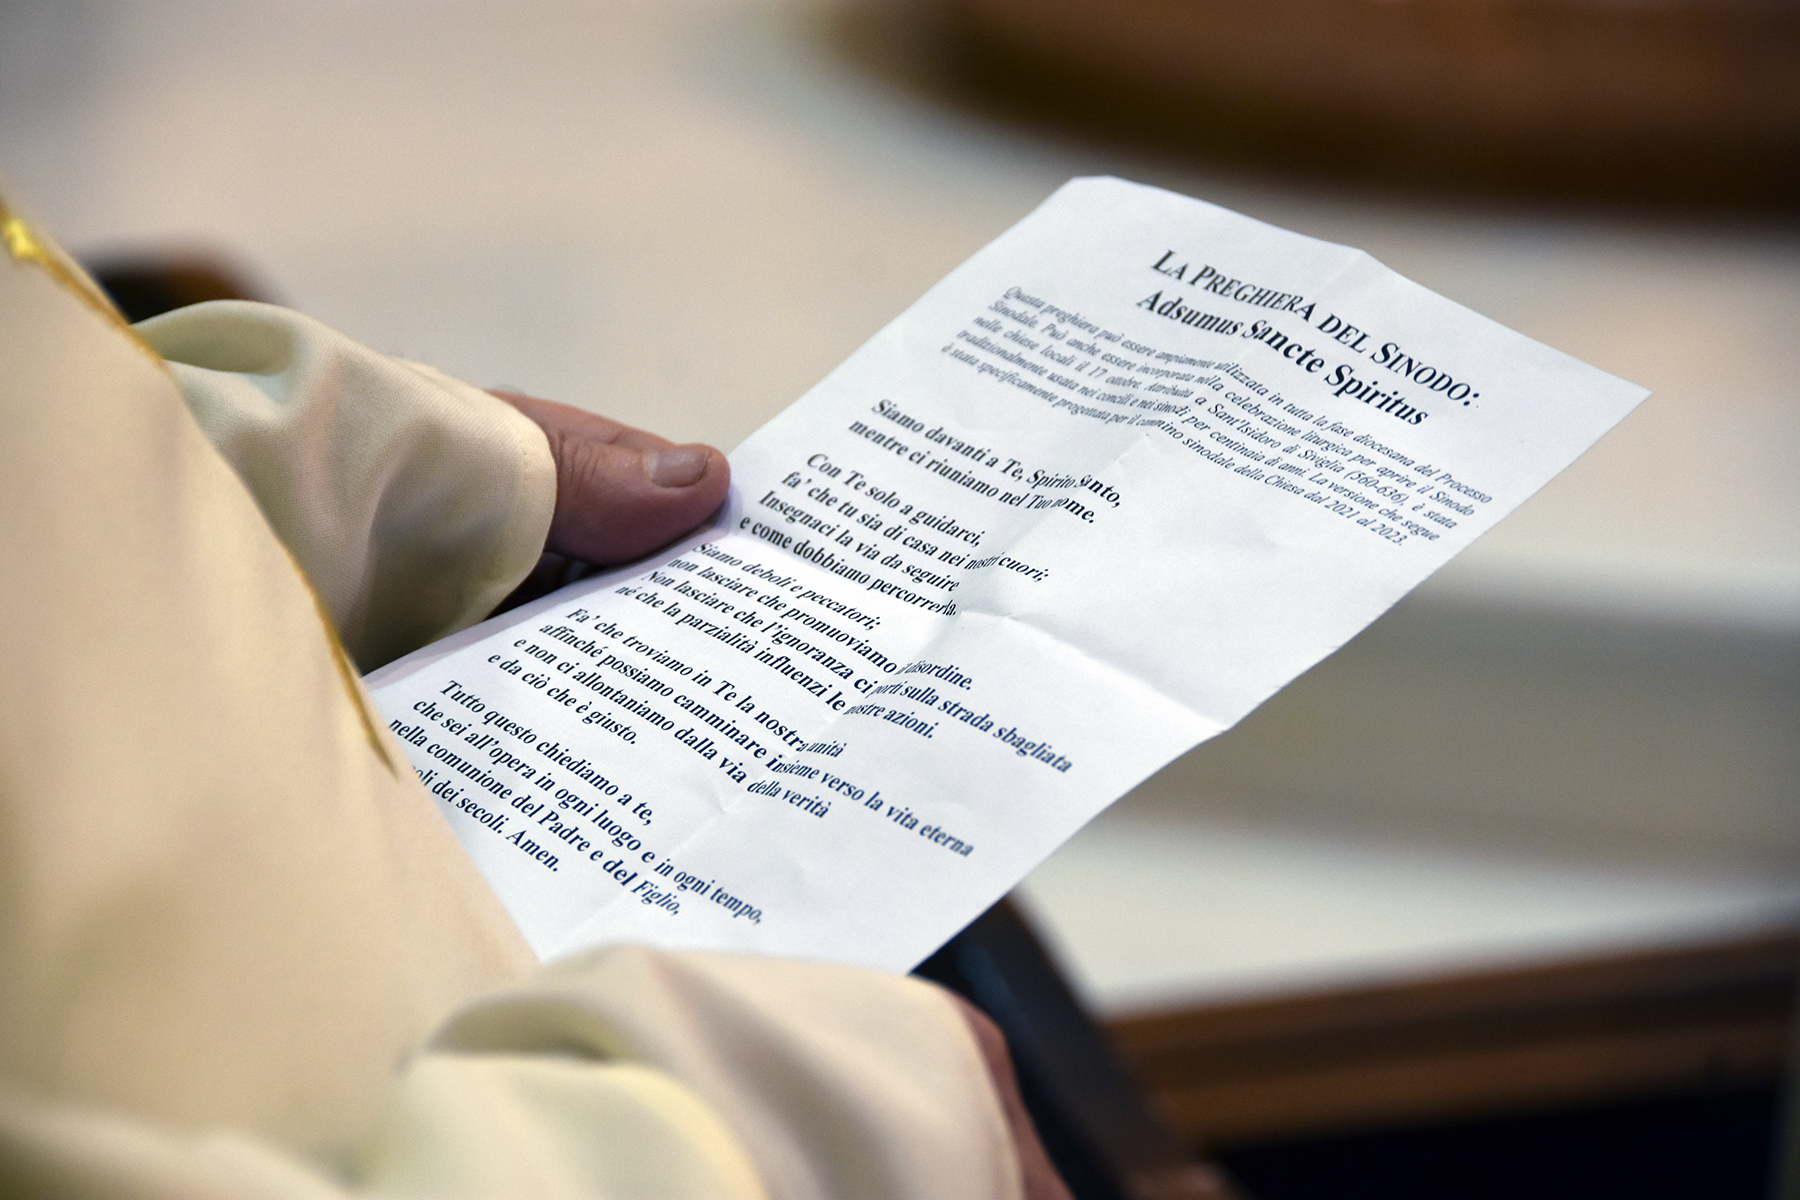 LA PREGHIERA DEL SINODO:
Adsumus Sancte Spiritus
Questa preghiera può essere ampiamente utilizzata in tutta la fase diocesana del Processo
Sinodale. Può anche essere incorporata nella celebrazione liturgica per aprire il Sinodo
nelle chiese locali il 17 ottobre. Attribuita a Sant'Isidoro di Siviglia (560-636), è stata
tradizionalmente usata nei concili e nei sinodi per centinaia di anni. La versione che segue
è stata specificamente progettata per il cammino sinodale della Chiesa dal 2021 al 2023.
Siamo davanti a Te, Spirito Santo,
mentre ci riuniamo nel Tuo nome.
Con Te solo a guidarci,
fa' che tu sia di casa nei nostri cuori;
Insegnaci la via da seguire
e come dobbiamo percorrerla.
Siamo deboli e peccatori;
non lasciare che promuoviamo il disordine.
Non lasciare che l'ignoranza ci porti sulla strada sbagliata
né che la parzialità influenzi le nostre azioni.
Fa' che troviamo in Te la nostra unità
affinché possiamo camminare insieme verso la vita eterna
e non ci allontaniamo dalla via della verità
e da ciò che è giusto.
Tutto questo chiediamo a te,
che sei all'opera in ogni luogo e in ogni tempo,
nella comunione del Padre e del Figlio,
dei secoli. Amen.